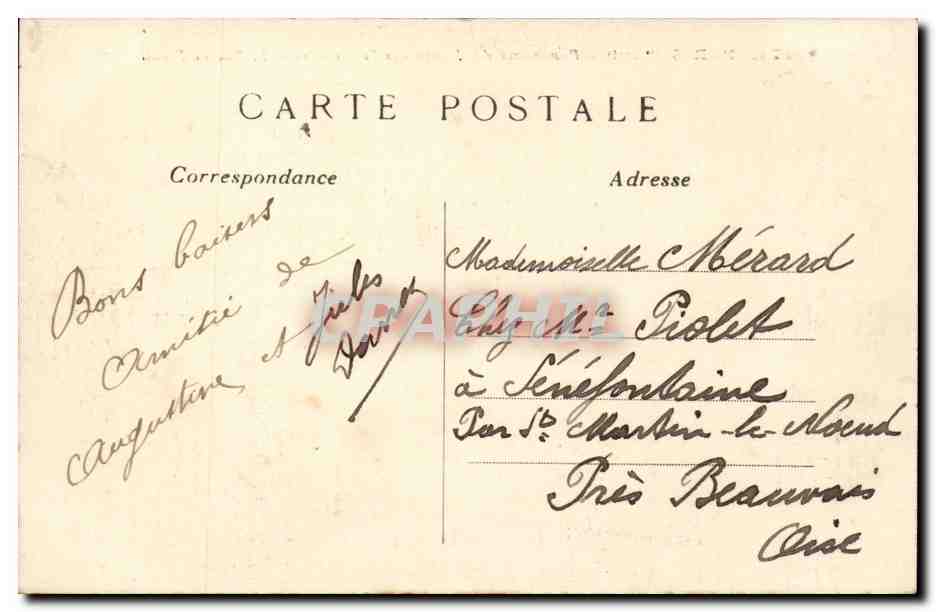 CARTE POSTALE
Correspondance
Adresse
Bons baisers
Amitié de
Augustine et Jules
Mademoiselle Mérard
Chez Mr Piolet
à Sénéfontaine
Par St. Martin-le-Noeud
Près Beauvais
Oise
LEAPHIL